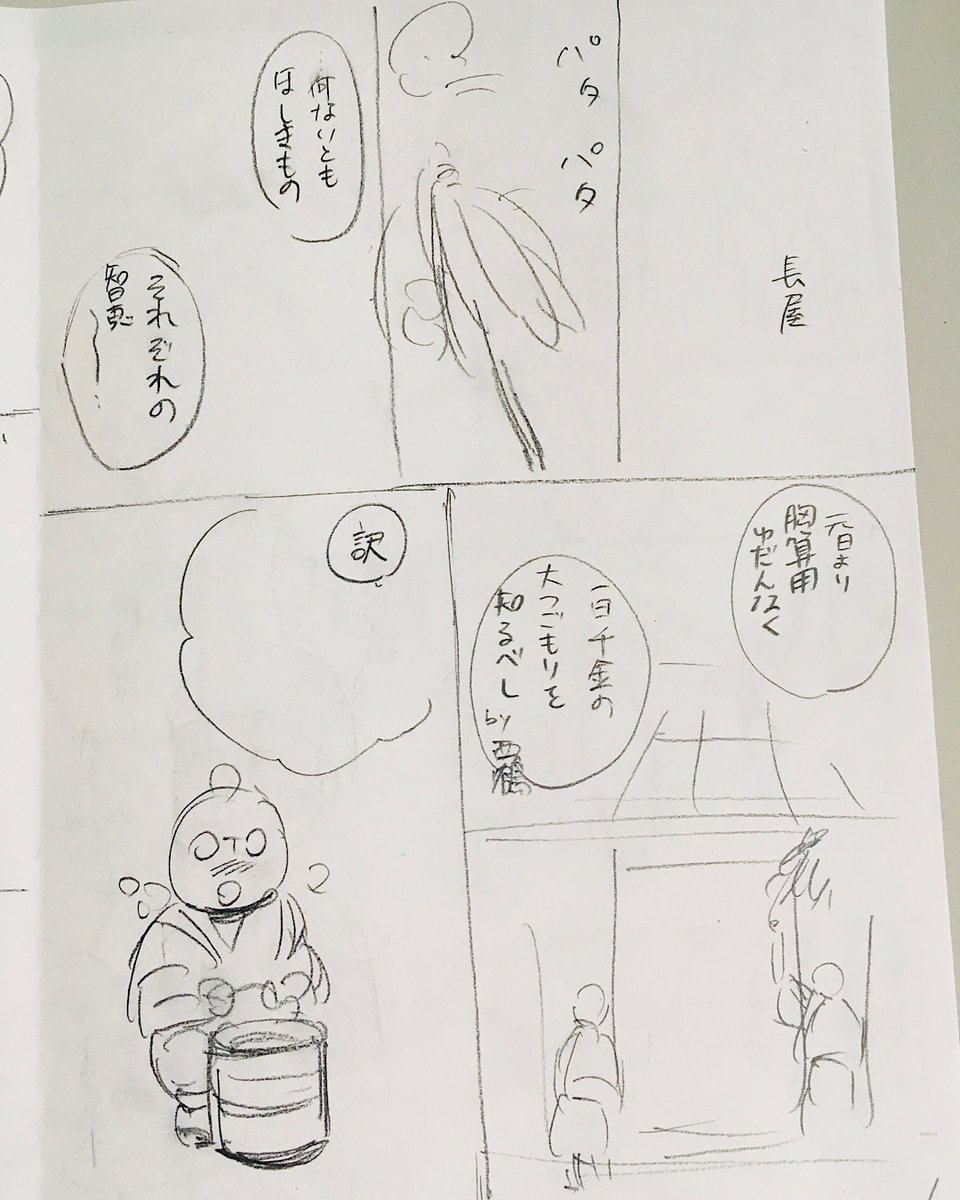 長屋
パタパタ
何ないとも
ほしきもの
それぞれの
智恵〜
元日より
胸算用
ゆだんなく
一日千金の
大つごもりを
知るべし
by西鶴
訳